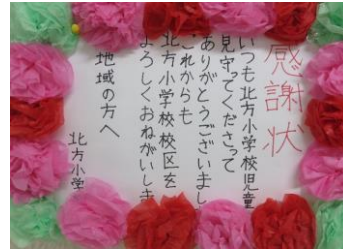 感謝状
いつも北方小学校児童
見守ってくださって
ありがとうございまし
これからも
北方小学校校区を
よろしくおねがいしま
地域の方へ
北方小学